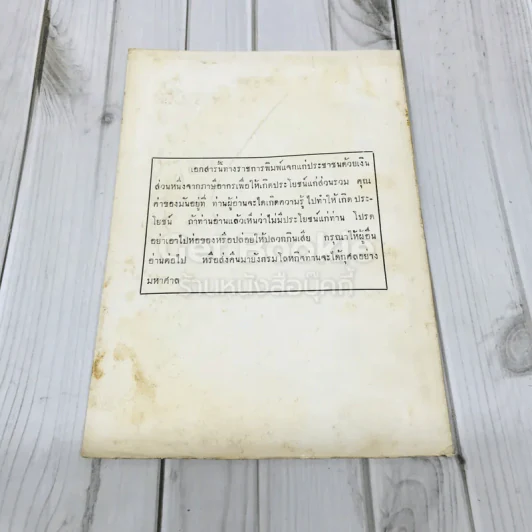 เอกสารนี้ทางราชการพิมพ์แจกแก่ประชาชนด้วยเงิน
ส่วนหนึ่งจากภาษีอากรเพื่อให้เกิดประโยชน์แก่ส่วนรวม คุณ
ค่าของมันอยู่ที่ ท่านผู้อ่านจะได้เกิดความรู้ ไปทำให้เกิด ประ-
โยชน์ ถ้าท่านอ่านแล้วเห็นว่าไม่มีประโยชน์แก่ท่าน โปรด
อย่าเอาไปห่อของหรือปล่อยให้ปลวกกินเสีย กรุณาให้ผู้อื่น
อ่านต่อไป หรือส่งคืนมายังกรมใดก็ดีท่านจะได้กุศลอย่าง
มหาศาล
ร้านหนังสือบุ๊คกี้